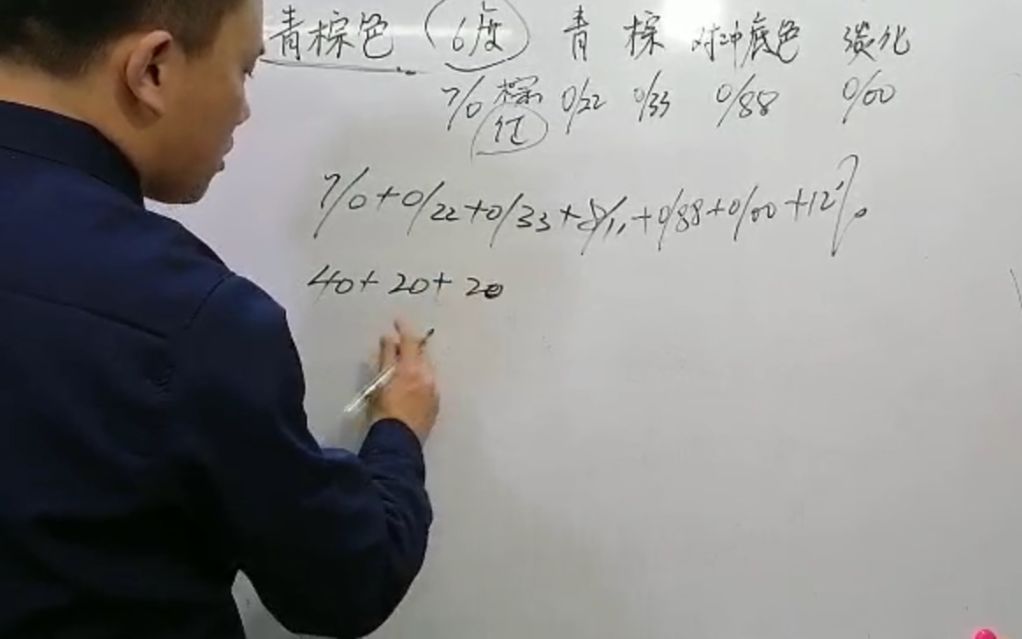 青棕色 (6度) 青 棕 对冲底色 淡化
7/0 棕 0/22 0/33 0/88 0/00
7/0+0/22+0/33+0/11+0/88+0/00+12%
40+20+20